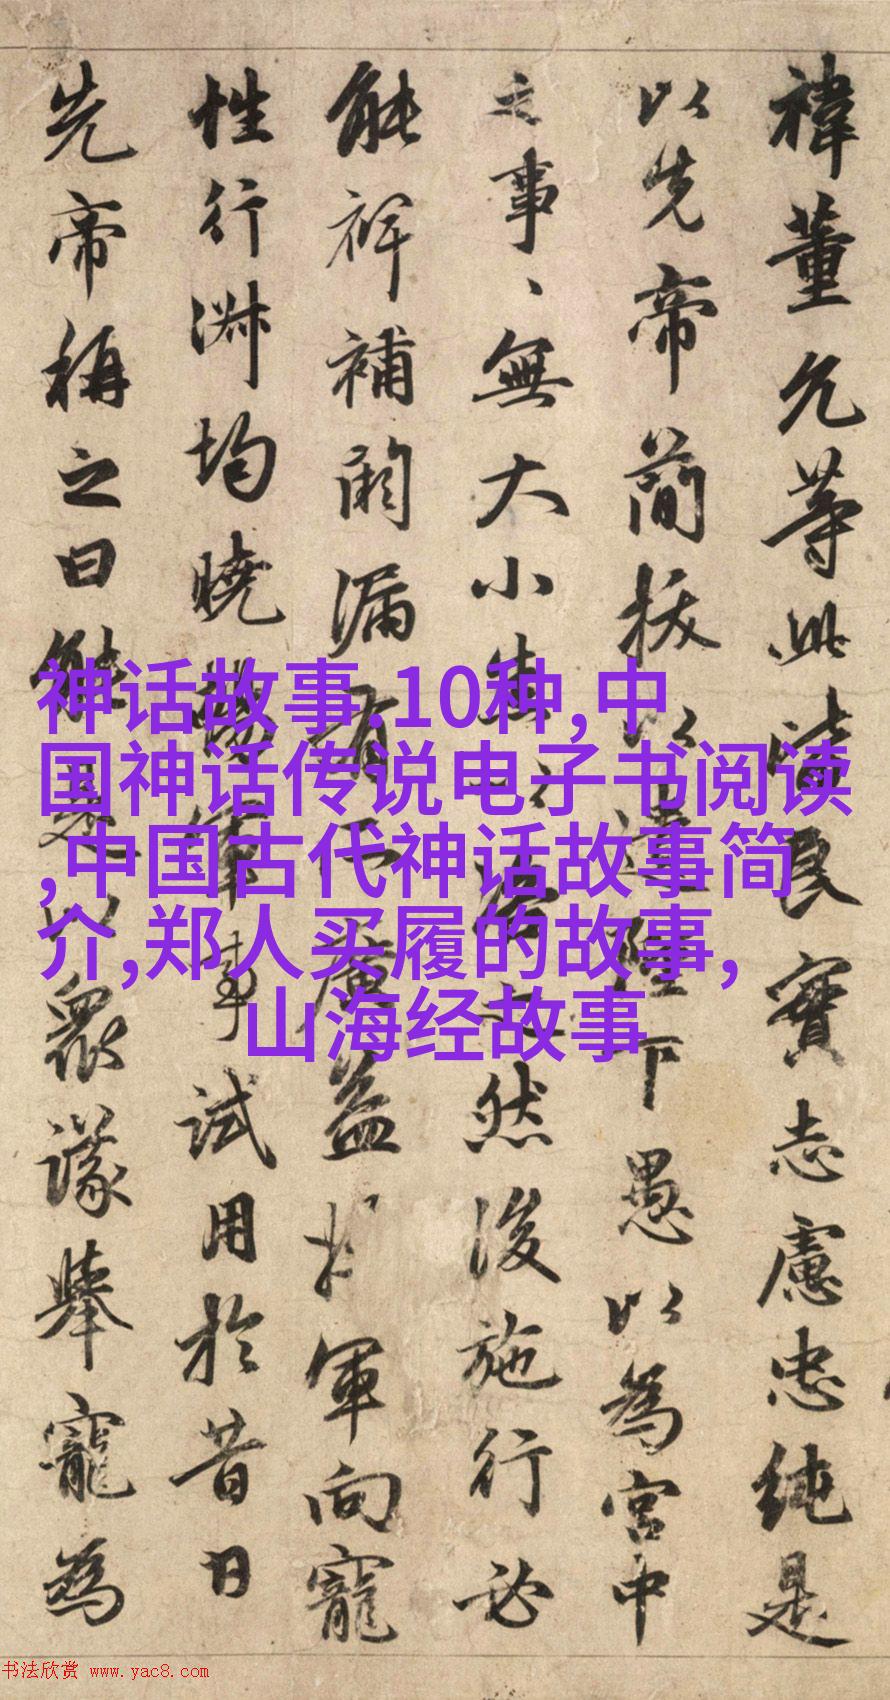 禕董允等此皆良實志慮忠純是
以先帝簡拔以遺陛下愚以為宮中
之事、無大小悉以咨之然後施行必
能裨補闕漏有所廣益將軍向寵
性行淑均曉暢軍事試用於昔日
先帝稱之曰能是以衆議舉寵為
神话故事.10种,中
国神话传说电子书阅读
,中国古代神话故事简
介,郑人买履的故事,
山海经故事
书法欣赏 www.yac8.com